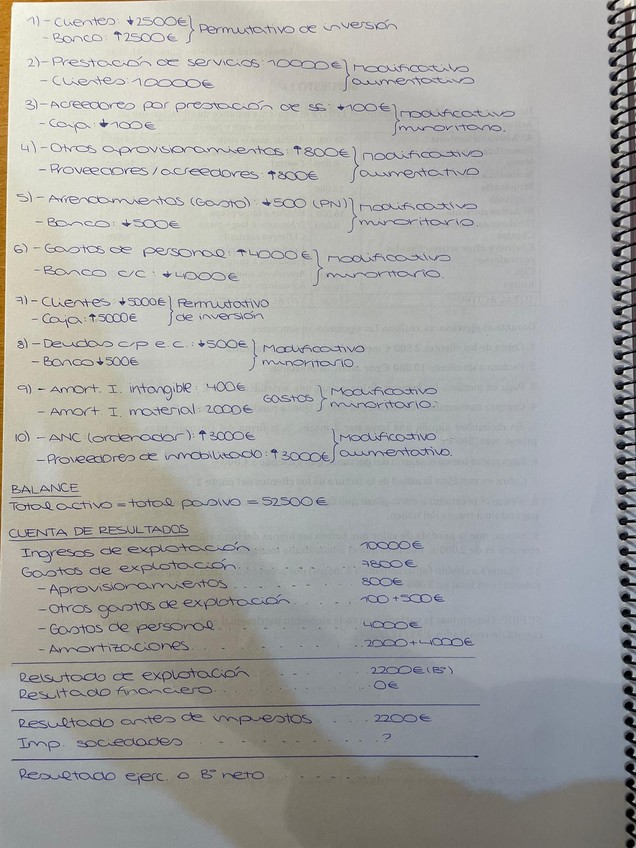 1) - Clientes: ↓2500€ } Permutativo de inversión
- Banco: ↑2500€
2) - Prestación de servicios: 10000€ } Modificativo
- Clientes: 10000€ } aumentativo
3) - Acreedores por prestación de ss: ↓100€ } modificativo
- Caja: ↓100€ } minoritario.
4) - Otros aprovisionamientos: ↑800€ } modificativo
- Proveedores/acreedores: ↑800€ } aumentativo.
5) - Arrendamientos (Gasto): ↓500 (PN) } Modificativo
- Banco: ↓500€ } minoritario.
6) - Gastos de personal: ↑4000€ } Modificativo
- Banco c/c: ↓4000€ } minoritario.
7) - Clientes ↓5000€ } Permutativo
- Caja: ↑5000€ } de inversión
8) - Deudas c/p e.c.: ↓500€ } Modificativo
- Banco ↓500€ } minoritario.
9) - Amort. I. intangible: 400€ gastos } Modificativo
- Amort. I. material: 2000€ } minoritario.
10) - ANC (ordenador): ↑3000€ } Modificativo
- Proveedores de inmobilizado: ↑3000€ } aumentativo.
BALANCE
Total activo = total pasivo = 52500€
CUENTA DE RESULTADOS
Ingresos de explotación 10000€
Gastos de explotación 7800€
- Aprovisionamientos 800€
- Otros gastos de explotación 100+500€
- Gastos de personal 4000€
- Amortizaciones 2000+4000€
Relsutado de explotación 2200€ (Bº)
Resultado financiero 0€
Resultado antes de impuestos 2200€
Imp. sociedades ?
Resultado ejerc. o Bº neto